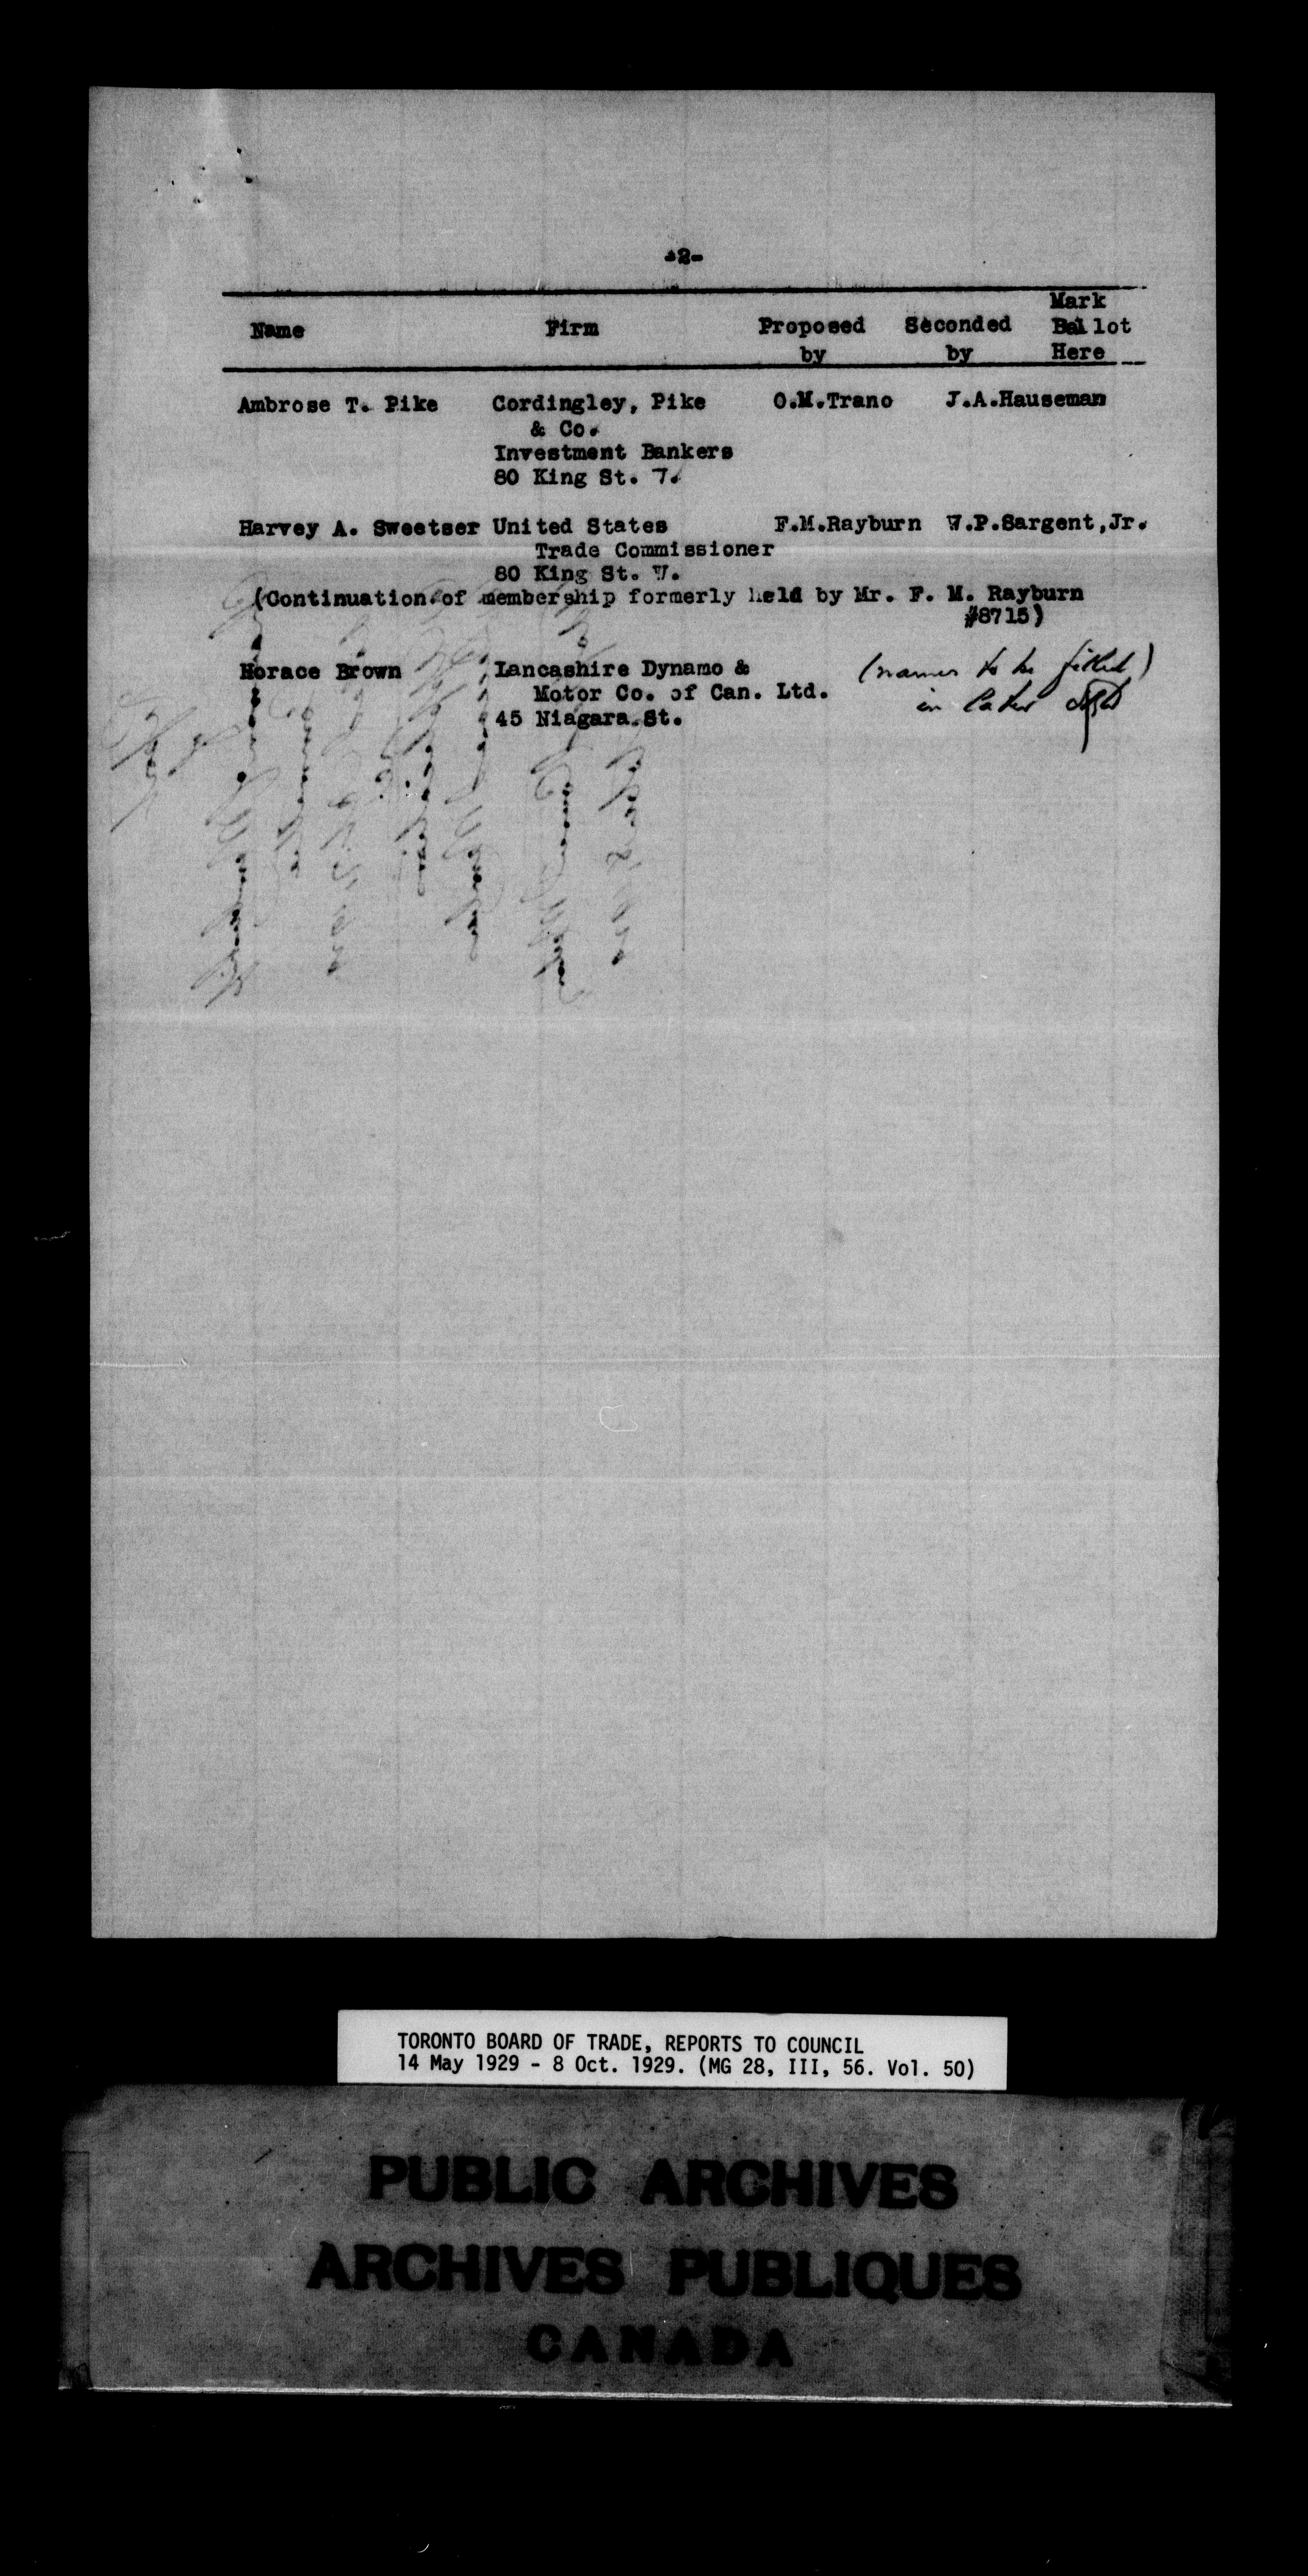 -2-
Name Firm Proposed by Seconded by Mark Ballot Here
Ambrose T. Pike Cordingley, Pike O.M.Trano J.A.Hauseman
& Co.
Investment Bankers
80 King St. W.
Harvey A. Sweetser United States F.M.Rayburn W.P.Sargent,Jr.
Trade Commissioner
80 King St. W.
(Continuation of membership formerly held by Mr. F. M. Rayburn
#8715)
Horace Brown Lancashire Dynamo & (names to be filled)
Motor Co. of Can. Ltd. in later
45 Niagara St.
TORONTO BOARD OF TRADE, REPORTS TO COUNCIL
14 May 1929 - 8 Oct. 1929. (MG 28, III, 56. Vol. 50)
PUBLIC ARCHIVES
ARCHIVES PUBLIQUES
CANADA